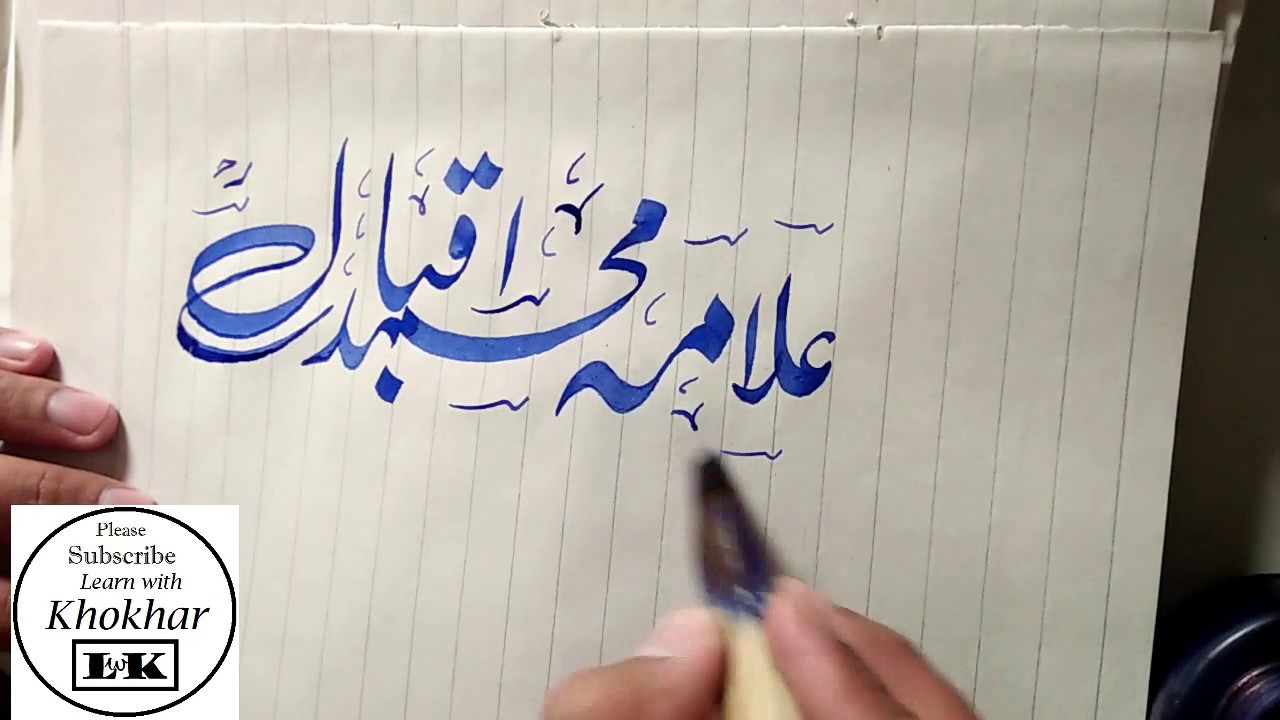 علامہ محمد اقبال
Please
Subscribe
Learn with
Khokhar
LwK